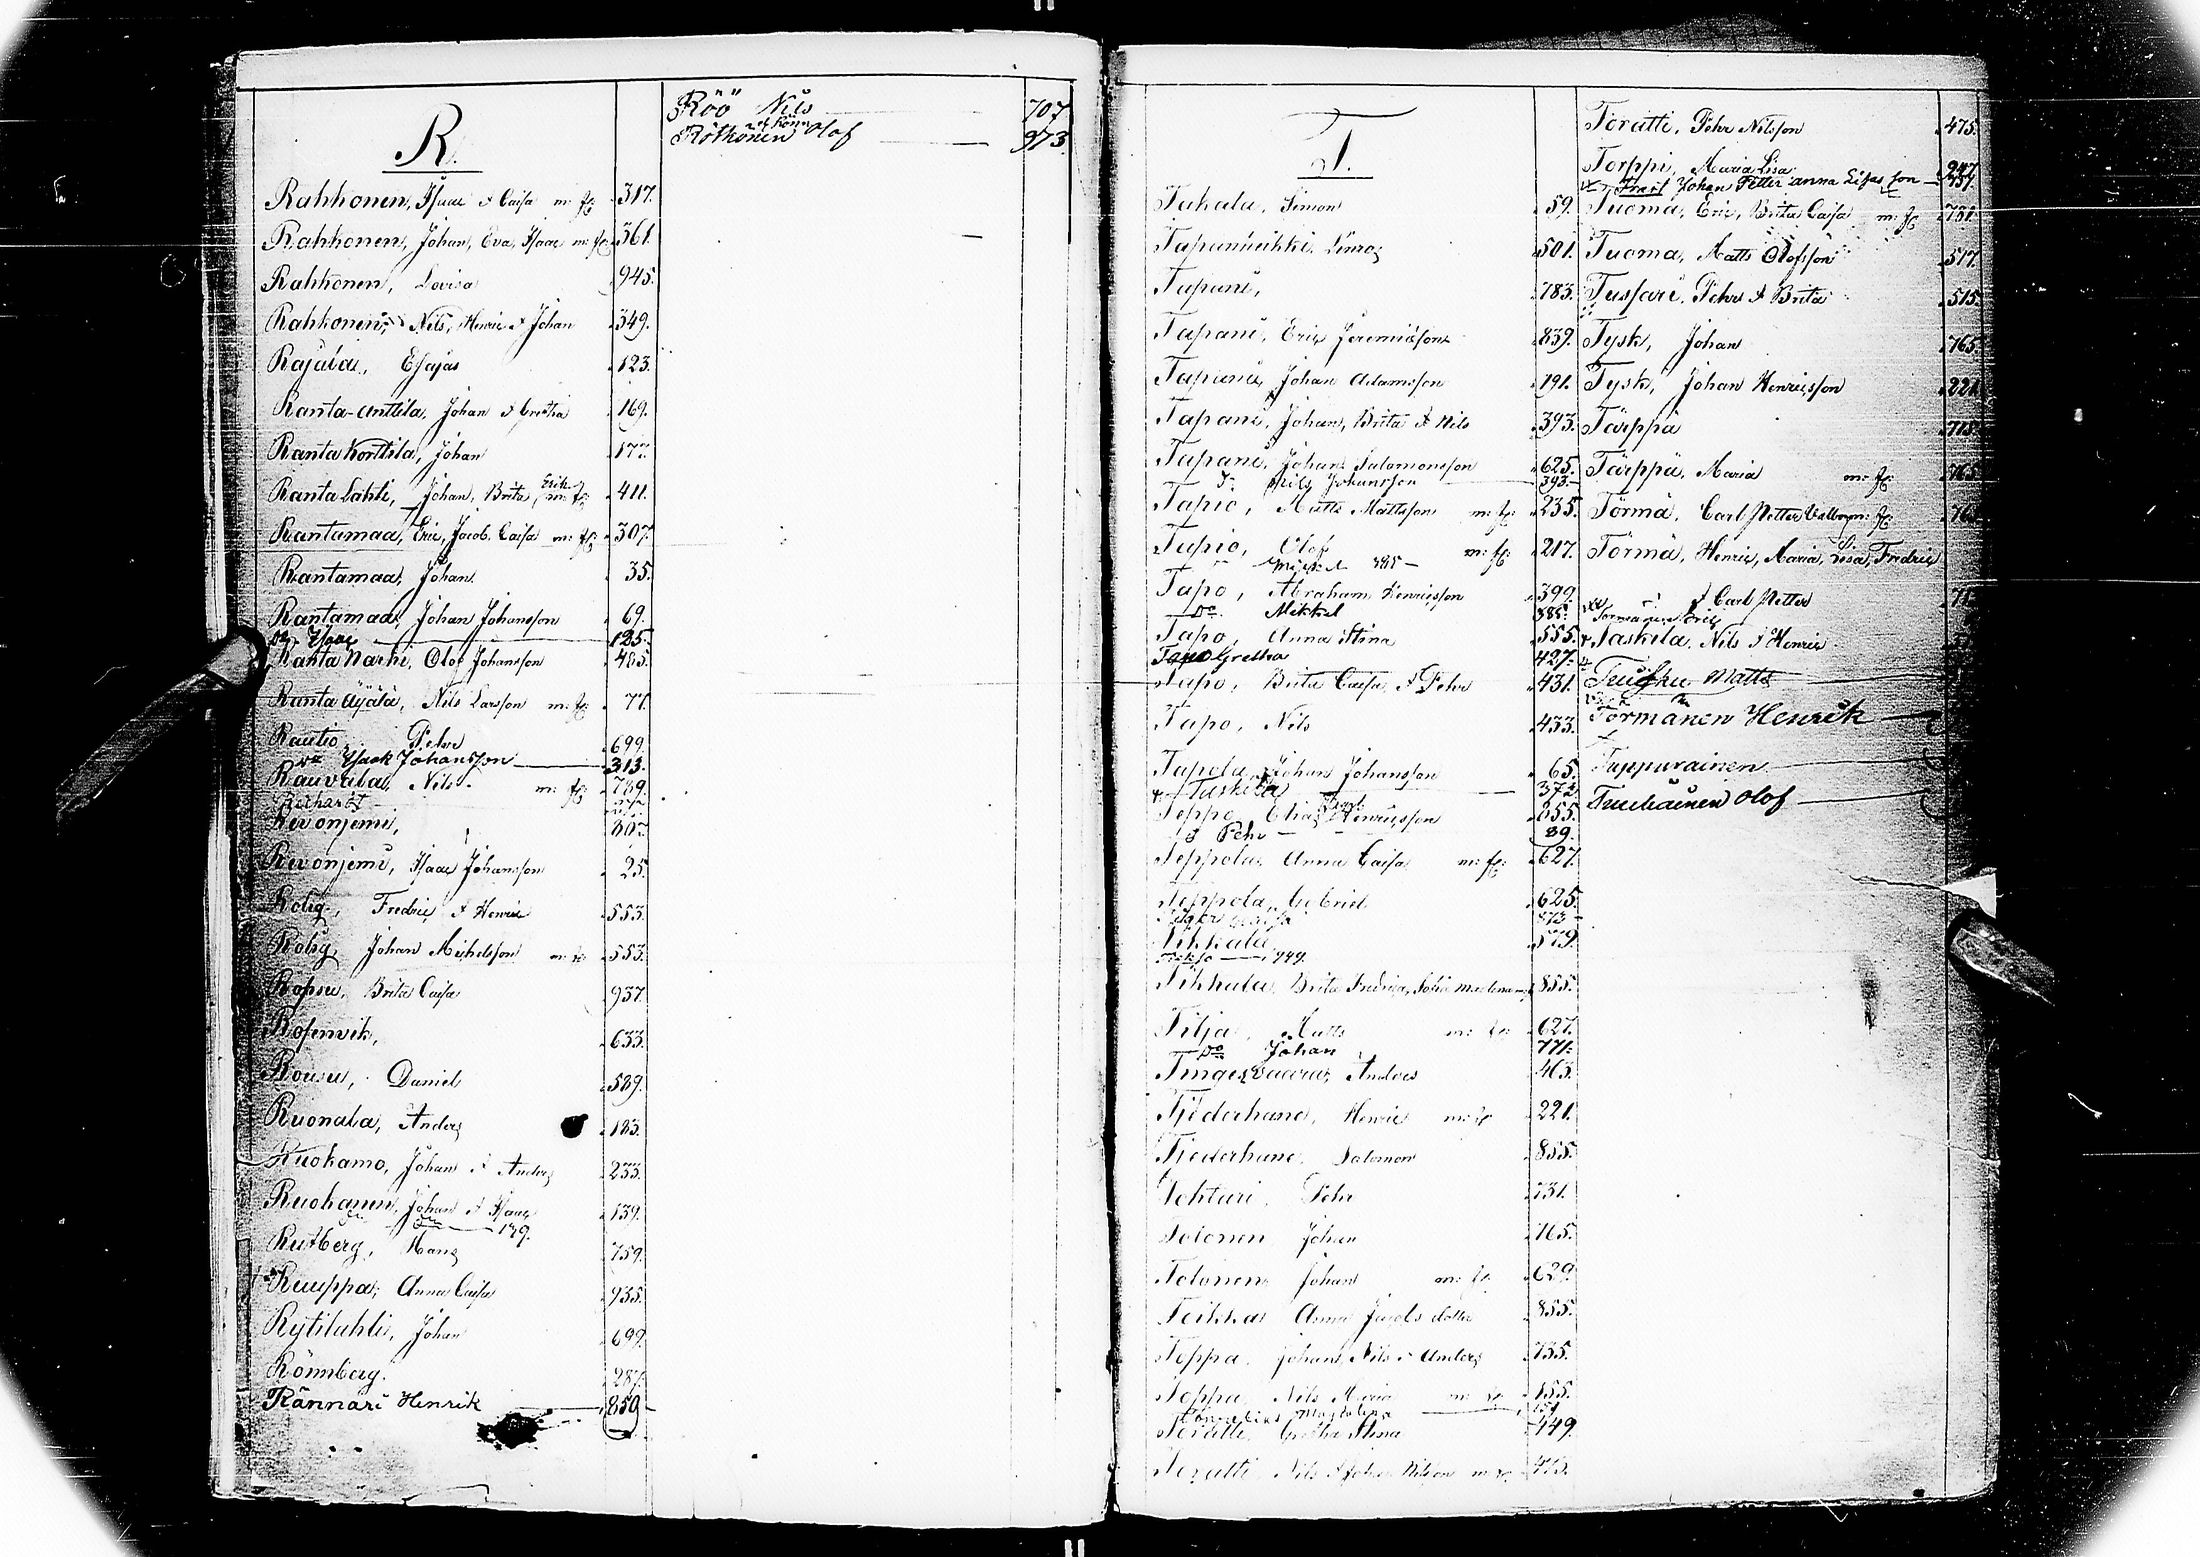 R.
Rahkonen, Isaac & Caisa m: fl: 317.
Rahkonen, Johan, Eva, Isaac m: fl: 361.
Rahkonen, Lovisa 945.
Rahkonen, Nils, Henric & Johan 349.
Rajala, Esajas 123.
Ranta-anttila, Johan & Gretha 169.
Ranta Korttila, Johan 177.
Ranta Lahti, Johan, Brita Erik m: fl: 411.
Rantamaa, Eric, Jacob, Caisa m: fl: 307.
Rantamaa, Johan 35.
Rantamaa, Johan Johansson 69.
Do Isaac 125.
Ranta Narhi, Olof Johansson 485.
Ranta Äijälä, Nils Larsson m: fl: 77.
Rautio Pehr 699.
Do Isaak Johansson 313.
Rauvala, Nils m: fl: 789.
Revonjemi, 307.
Revonjemi, Isaac Johansson 25.
Rolig, Fredric & Henric 553.
Rolig Johan Michelsson 553.
Ropsu, Brita Caisa 937.
Rosenvik, 633.
Rousu, Daniel 589.
Ruonala, Anders 183.
Ruokamo, Johan & Anders 233.
Ruokanen, Johan & Isaac 139.
179.
Rutberg, Hans 759.
Ruuppa, Anna Caisa 935.
Rytilahti, Johan 699.
Rönnberg. 287.
Rännäri Henrik 859
Röö Nils 707
Rötkönen Olof 973
T.
Takala, Simon 59.
Tapaninikki, 501.
Tapani, 783.
Tapani, Eric Jeremiasson 839.
Tapani, Johan Adamsson 191.
Tapani, Johan, Brita & Nils 393.
Tapani, Johan Salomonsson 625.
Nils Johansson 393.
Tapio, Matts Mattsson m: fl: 235.
Tapio, Olof m: fl: 217.
Tapo, Abraham Henricsson 399.
Do Mikkel 385.
Tapo, Anna Stina 555.
Tapo Gretha 427.
Tapo, Brita Caisa & Pehr 431.
Tapo, Nils 433.
Tapola, Johan Johansson 65.
Taskila 372
Teppo, Elias Henricsson 855.
Pehr 89.
Teppola, Anna Caisa m: fl: 627.
Teppola, Gabriel 625.
Tikkala 579.
Tikkala, Brita Fredrica, 855.
Tilja, Matts 627.
Do Johan 771.
Tingesvaara, Anders 465.
Tjederhane, Henric 221.
Tjederhane, Salomon 855.
Tohturi, Pehr 731.
Tolonen Johan 165.
Tolonen Johan 629.
Toikka Anna Jacobs dotter 855.
Toppa, Johan, Nils & Anders 755.
Toppa, Nils Maria 155.
Toratti, Gretha Stina 449.
Toratti, Nils
Toratti, Pehr Nilsson 475.
Torppi, Maria Lisa 247
Johan Petter anna Lisas son 757.
Tuoma, Eric, Brita Caisa m: fl: 751.
Tuoma, Matts Olofsson 517.
Tussari, Pehr & Brita 515.
Tysk, Johan 765.
Tysk, Johan Henricsson 221.
Tärppä 715.
Tärppä, Maria m: fl: 765.
Törmä, Carl Petter
Törmä, Henric, Maria, Lisa, Fredric
& Carl Petter
Törmänen Eric
Taskila, Nils & Henric
Matts
Törmänen Henrik
Tuppurainen
Tuuliainen Olof